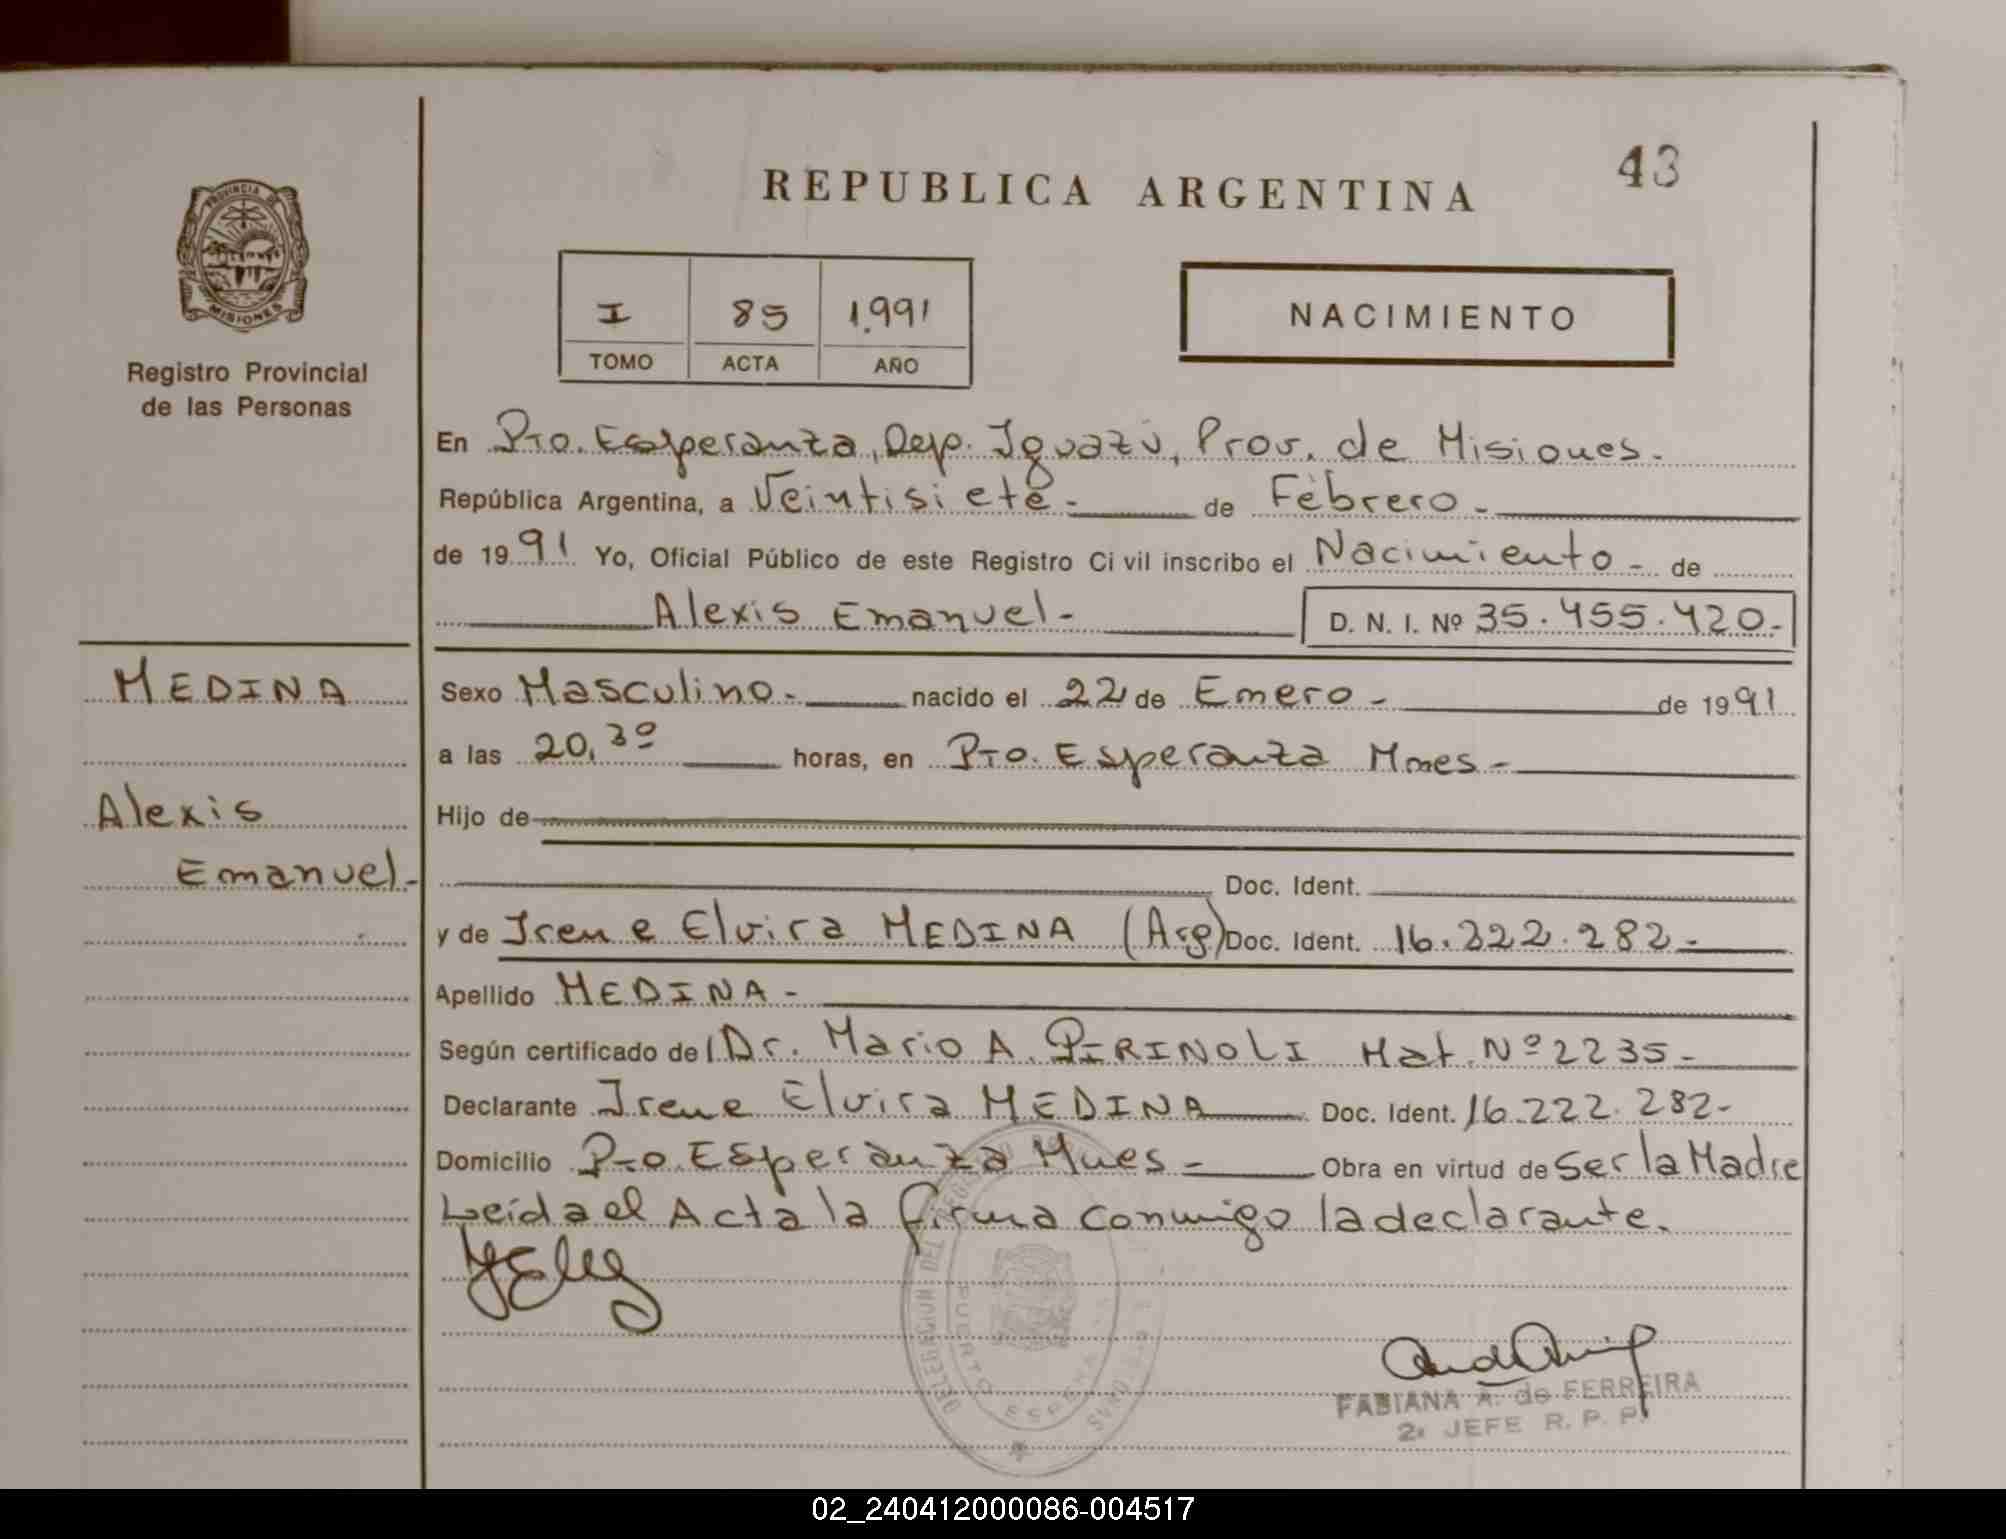 43
REPUBLICA ARGENTINA
PROVINCIA DE
MISIONES
Registro Provincial
de las Personas
I 85 1.991
TOMO ACTA AÑO
NACIMIENTO
En Pto. Esperanza, Dep. Iguazú, Prov. de Misiones.
República Argentina, a Veintisiete - de Febrero -
de 1991 Yo, Oficial Público de este Registro Civil inscribo el Nacimiento - de
Alexis Emanuel - D. N. I. Nº 35.455.420.-
MEDINA
Alexis
Emanuel -
Sexo Masculino - nacido el 22 de Enero - de 1991
a las 20,30 horas, en Pto. Esperanza Mnes -
Hijo de
Doc. Ident.
y de Irene Elvira MEDINA (Arg) Doc. Ident. 16.222.282 -
Apellido MEDINA -
Según certificado del Dr. Mario A. PIRINOLI Mat. Nº 2235 -
Declarante Irene Elvira MEDINA Doc. Ident. 16.222.282-
Domicilio Pto. Esperanza Mnes - Obra en virtud de Ser la Madre
Leída el Acta la firma conmigo la declarante.
DELEGACION DEL REGISTRO
PUERTO ESPERANZA
FABIANA A. de FERREIRA
2º JEFE R. P. P.
02_240412000086-004517